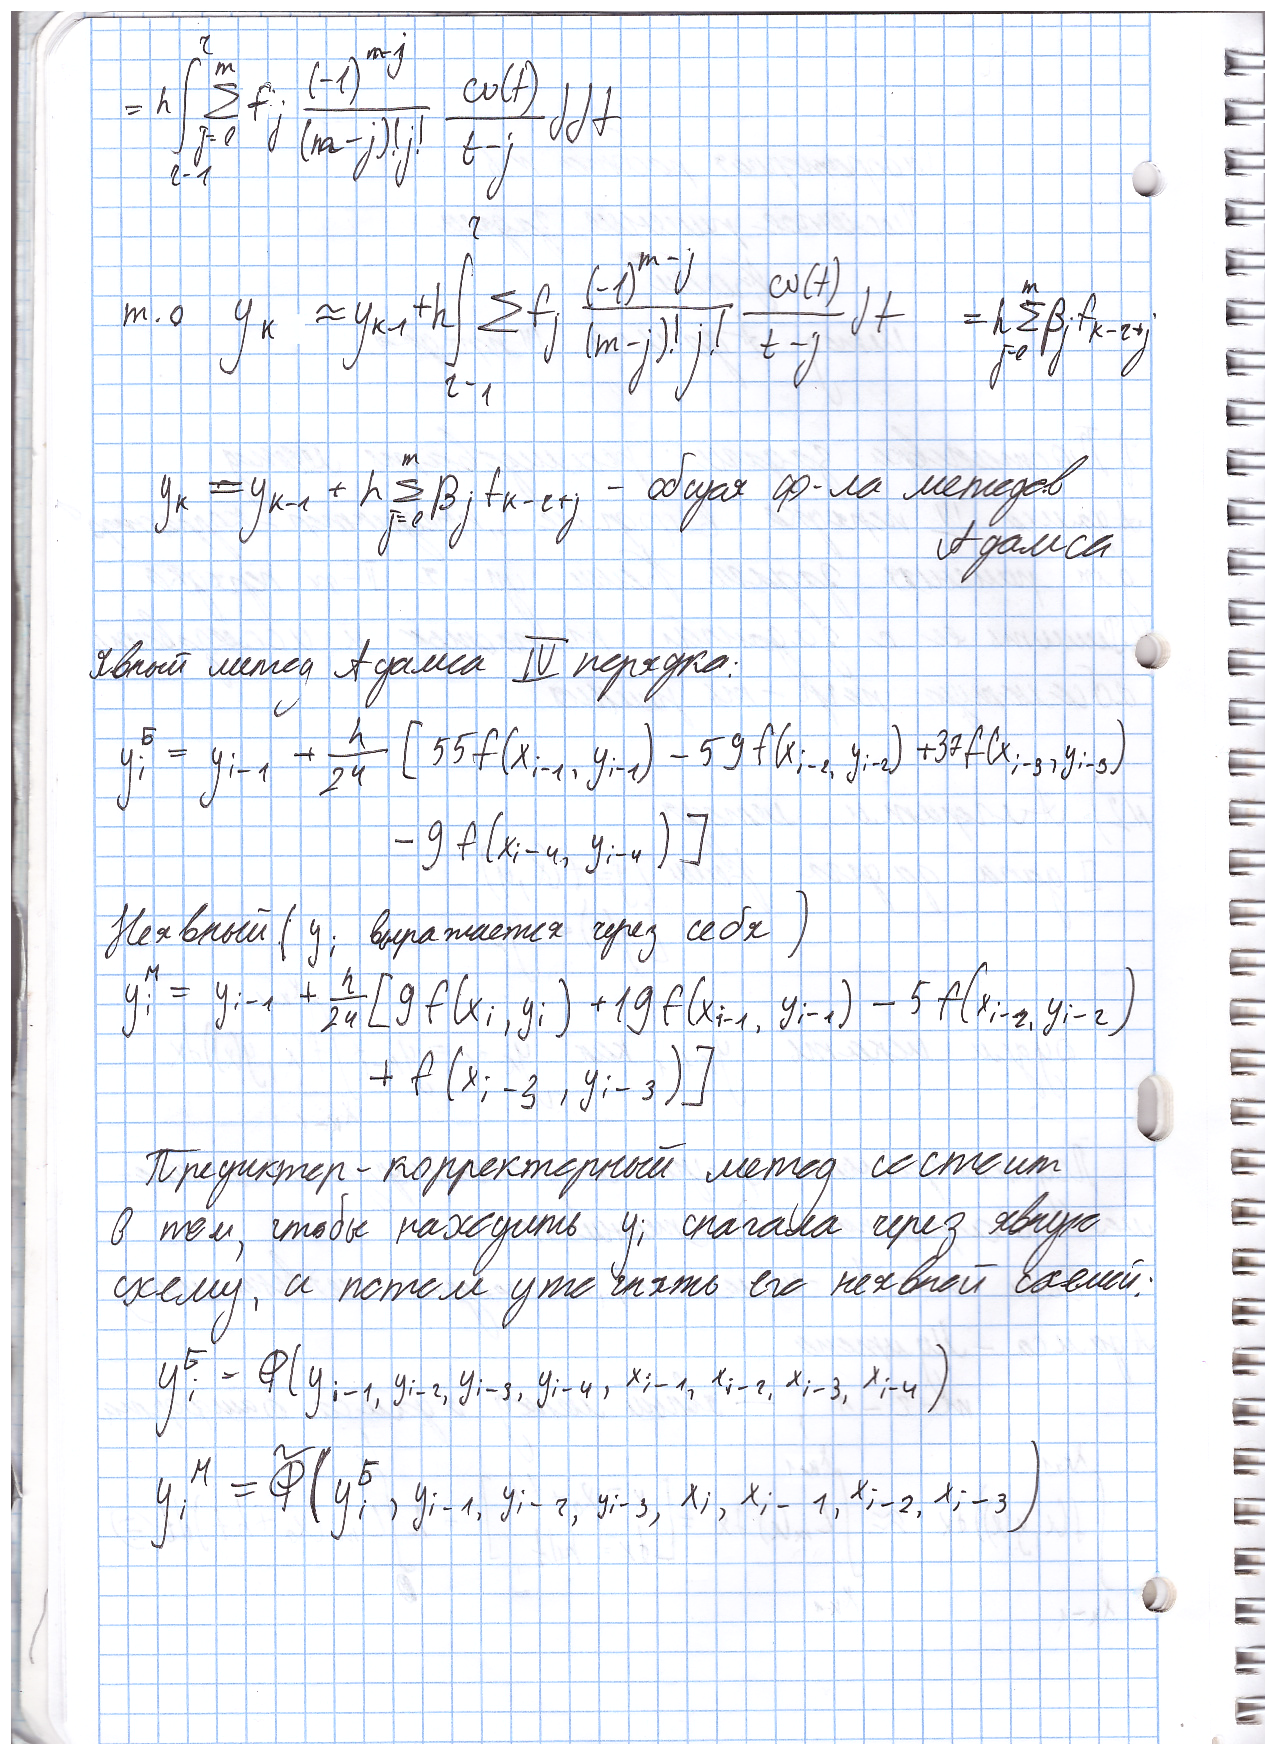 = h ∫_{r-1}^{r} ∑_{j=0}^{m} f_j (-1)^{m-j} / ((m-j)! j!) ω(t) / (t-j) ] dt
т.о y_k ≈ y_{k-1} + h ∫_{r-1}^{r} ∑ f_j (-1)^{m-j} / ((m-j)! j!) ω(t) / (t-j) dt = h ∑_{j=0}^{m} β_j f_{k-r+j}
y_k = y_{k-1} + h ∑_{j=0}^{m} β_j f_{k-r+j} - общая ф-ла методов
Адамса
Явный метод Адамса IV порядка:
y_i^Б = y_{i-1} + h/24 [ 55f(x_{i-1}, y_{i-1}) - 59f(x_{i-2}, y_{i-2}) + 37f(x_{i-3}, y_{i-3})
- 9f(x_{i-4}, y_{i-4}) ]
Неявный (y_i выражается через себя)
y_i^М = y_{i-1} + h/24 [ 9f(x_i, y_i) + 19f(x_{i-1}, y_{i-1}) - 5f(x_{i-2}, y_{i-2})
+ f(x_{i-3}, y_{i-3}) ]
Предиктор-корректорный метод состоит
в том, чтобы находить y_i сначала через явную
схему, а потом уточнять его неявной схемой:
y_i^Б = Φ(y_{i-1}, y_{i-2}, y_{i-3}, y_{i-4}, x_{i-1}, x_{i-2}, x_{i-3}, x_{i-4})
y_i^М = Φ̃(y_i^Б, y_{i-1}, y_{i-2}, y_{i-3}, x_i, x_{i-1}, x_{i-2}, x_{i-3})